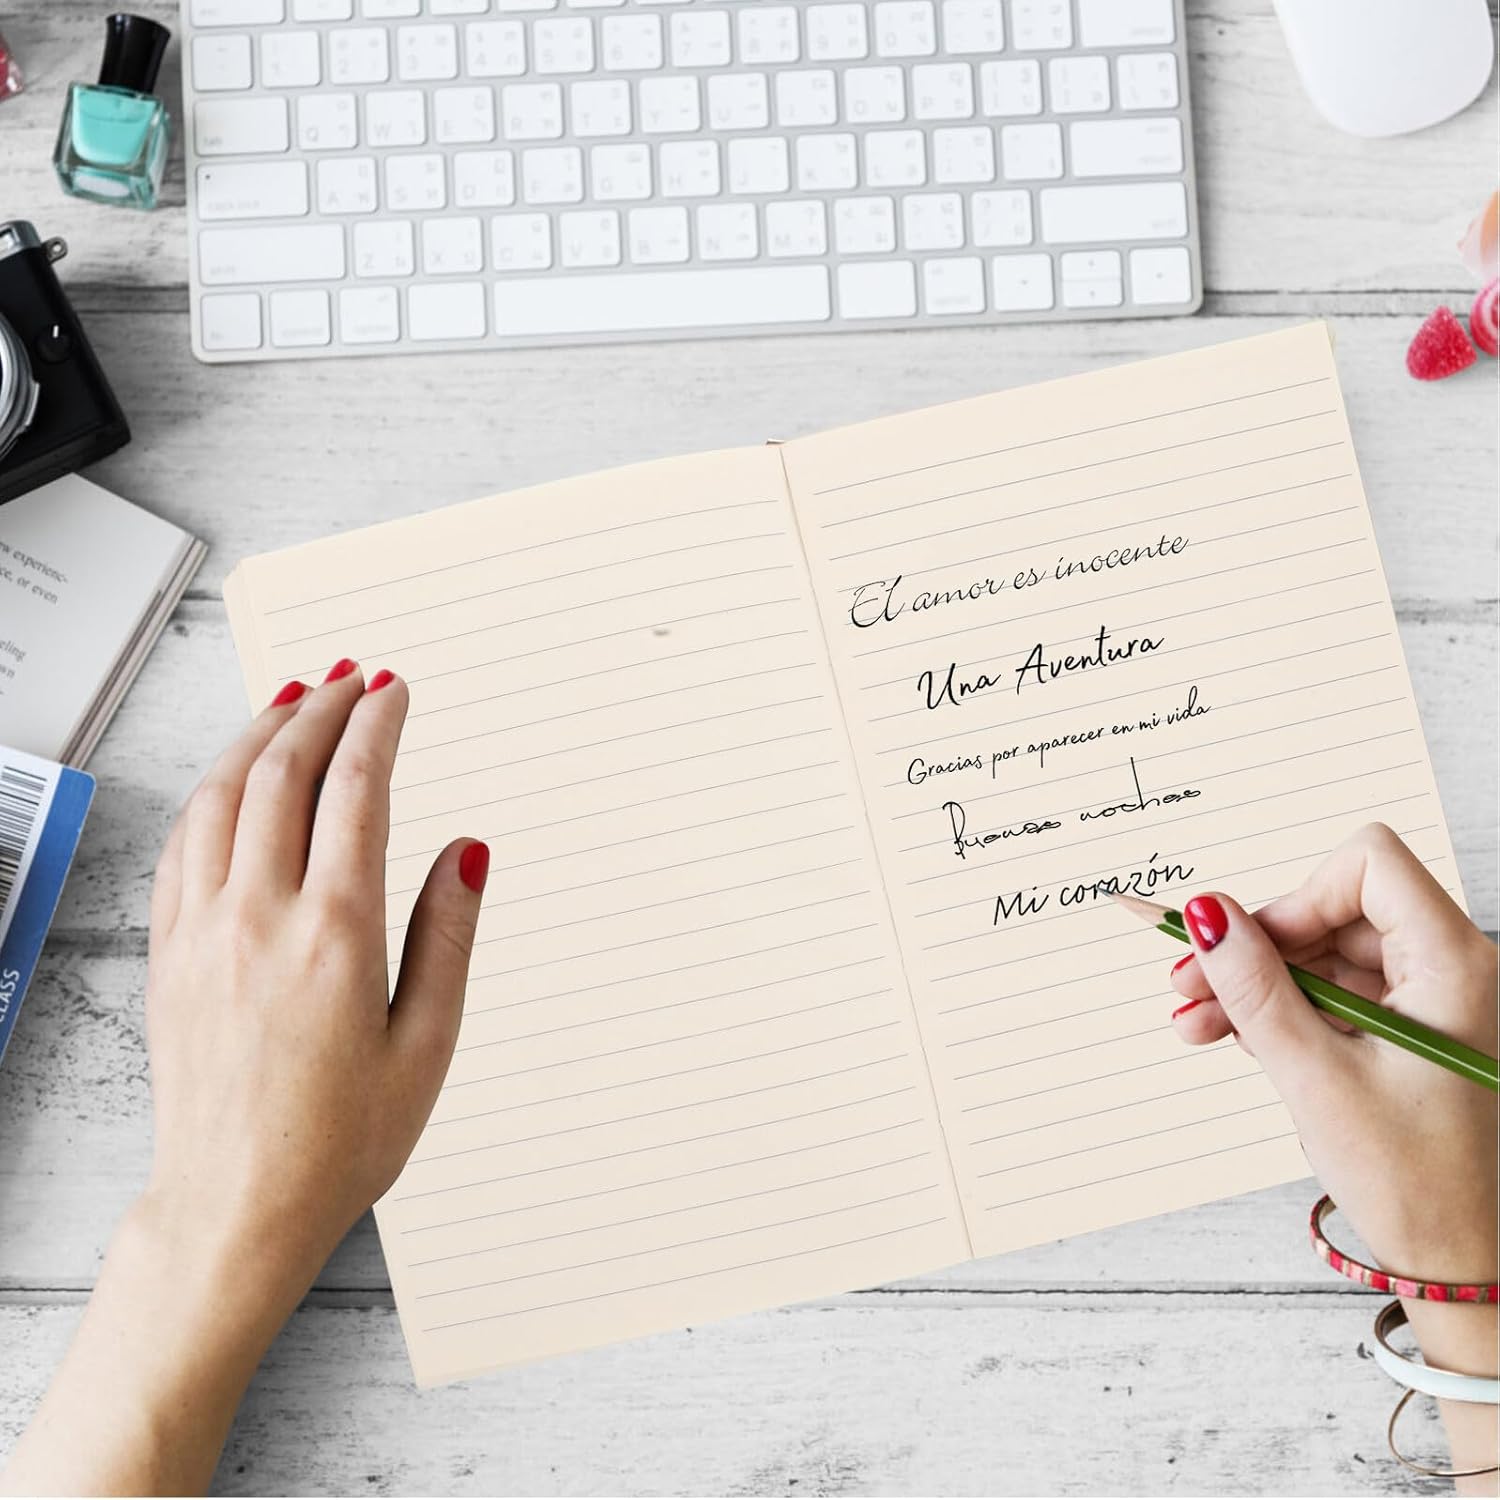 tab
Q W E R T Y U I O P
A S D F G H J K L
Z X C V B N M
w experienc-
ce, or even
eling
wn
CLASS
El amor es inocente
Una Aventura
Gracias por aparecer en mi vida
Buenas noches
Mi corazón